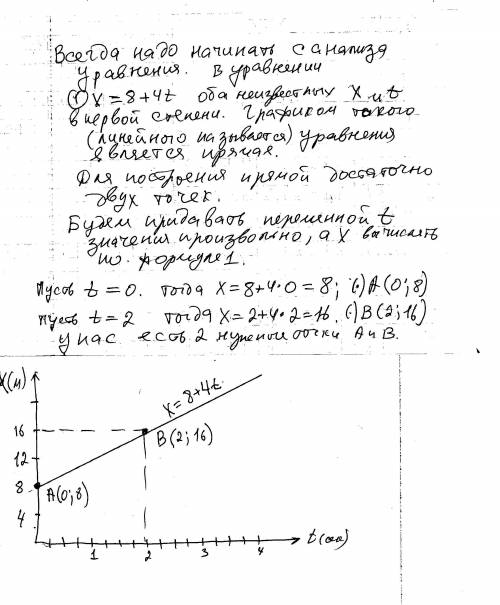 Всегда надо начинать с анализа
уравнения. В уравнении
① x = 8 + 4t оба неизвестных x и t
в первой степени. Графиком такого
(линейного называется) уравнения
является прямая.
Для построения прямой достаточно
двух точек.
Будем придавать переменной t
значения произвольно, а x вычислять
по формуле 1.
Пусть t = 0. тогда x = 8 + 4·0 = 8; (·)A(0;8)
пусть t = 2 тогда x = 2 + 4·2 = 16. (·)B(2;16)
у нас есть 2 нужные точки A и B.
x(м)
x = 8 + 4t
16
B(2;16)
12
8
A(0;8)
4
1
2
3
4
t(сек)